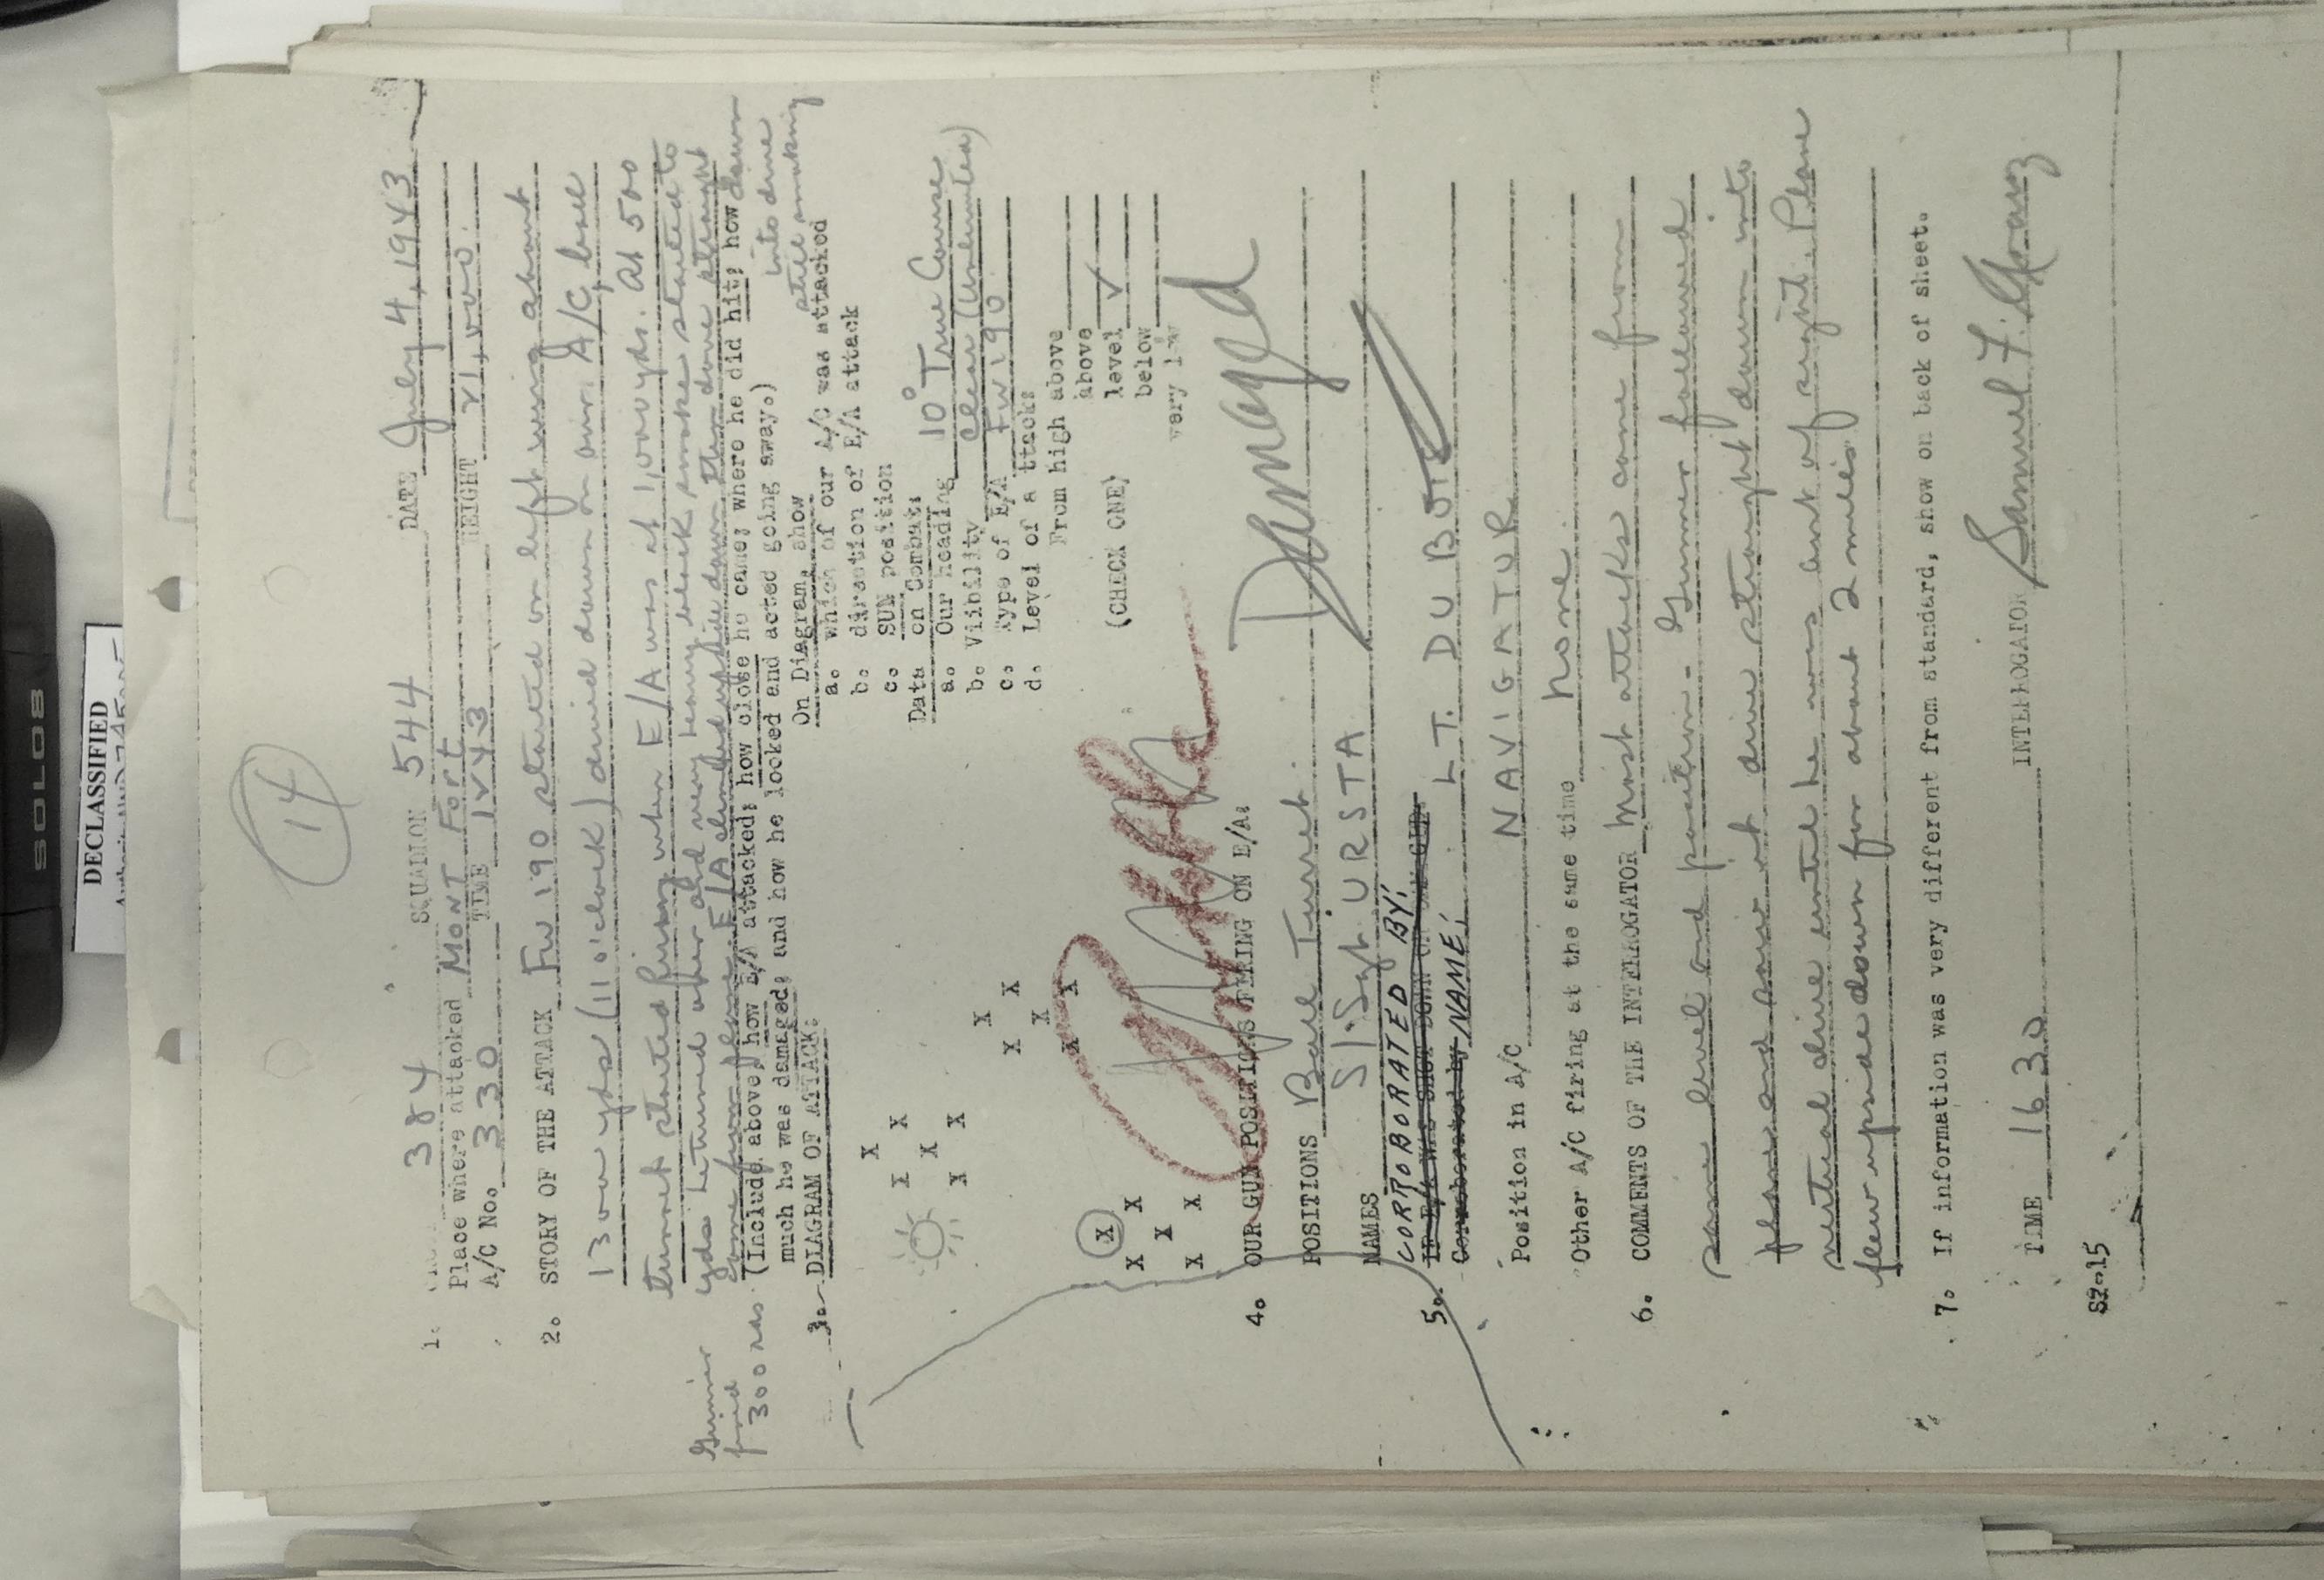 SOLO8
DECLASSIFIED
14
1. 384 SQUADRON 544 DATE July 4, 1943
Place where attacked MONT FORT HEIGHT 21,000.
A/C No. 330 TIME 1243
2. STORY OF THE ATTACK FW 190 started on left wing about
1300 yds (11 o'clock) dived down on our A/C, ball
turret started firing when E/A was at 1,000 yds. At 500
yds returned over and very heavy black smoke started to
come from plane. E/A down then dove straight down
into dive
still smoking
Gunner
fired
300 rds.
(Include above, how E/A attacked; how close he came; where he did hit; how
much he was damaged; and how he looked and acted going away.)
3. DIAGRAM OF ATTACK:
On Diagram, show
a. which of our A/C was attacked
b. diraction of E/A attack
c. SUN position
Data on Combat:
a. Our Heading 10° True Course
b. Viibility Clear (Unlimited)
c. Type of E/A FW 190
d. Level of attack:
From high above
above
(CHECK ONE) level ✓
below
very low
X
X X
X
X X
X X
X X
X X
X X
X X
X
X X
Damaged
4. OUR GUN POSITIONS FIRING ON E/A:
POSITIONS Ball Turret
NAMES S/Sgt. URSTA
5. CORROBORATED BY:
NAME: LT. DU BOIS
Position in A/C NAVIGATOR
Other A/C firing at the same time none
6. COMMENTS OF THE INTERROGATOR Most attacks come from
same level and position - Gunner followed
plane and saw it dive straight down into
vertical dive until he was lost of sight. Plane
flew upside down for about 2 miles
7. If information was very different from standard, show on back of sheet.
TIME 1630 INTERROGATOR Samuel F.
S2-15